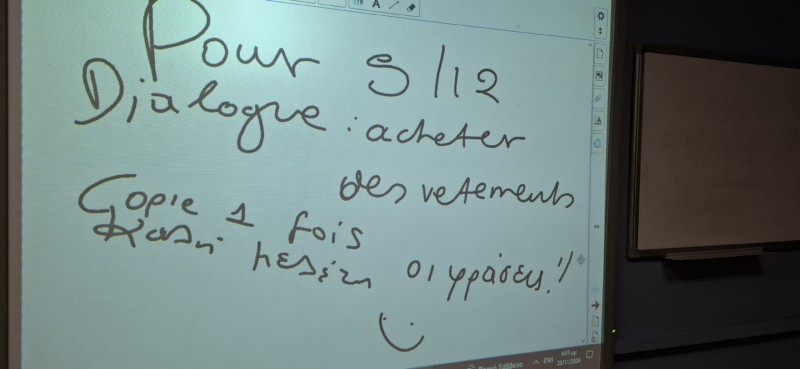 Pour 5/12
Dialogue : acheter
des vetements
Copie 1 fois
Καλή μελέτη οι φράσεις!!
ENG